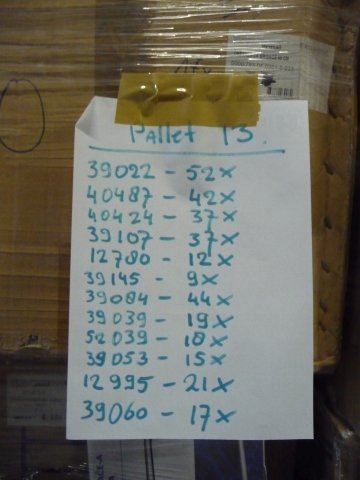 Pallet 13.
39022 - 52x
40487 - 42x
40424 - 37x
39107 - 37x
12780 - 12x
39145 - 9x
39084 - 44x
39039 - 19x
52039 - 18x
39053 - 15x
12995 - 21x
39060 - 17x